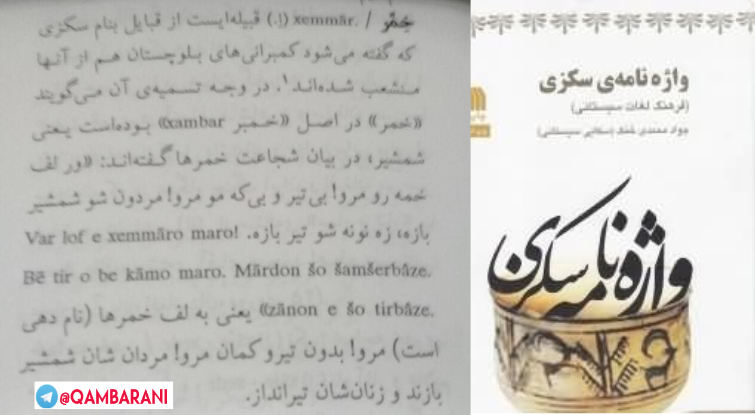 خِمَّر / xemmār. (اِ.) قبیله‌ایست از قبایل بنام سکزی
که گفته می‌شود کمبرانی‌های بلوچستان هم از آنها
منشعب شده‌اند۱. در وجه تسمیه‌ی آن می‌گویند
«خمر» در اصل «خمبر xambar» بوده‌است یعنی
شمشیر، در بیان شجاعت خمرها گفته‌اند: «ور لف
خمه رو مرو! بی‌تیر و بی‌که مو مرو! مردون شو شمشیر
بازه، زه نونه شو تیر بازه. Var lof e xemmāro maro!
Bē tir o be kāmo maro. Mārdon šo šamšerbâze.
zānon e šo tirbâze.» یعنی به لف خمرها (نام دهی
است) مرو! بدون تیر و کمان مرو! مردان شان شمشیر
بازند و زنان‌شان تیرانداز.
@QAMBARANI
واژه نامه‌ی سکزی
(فرهنگ لغات سیستانی)
جواد محمدی خمک (سکایی سیستانی)
واژه نامه سکزی